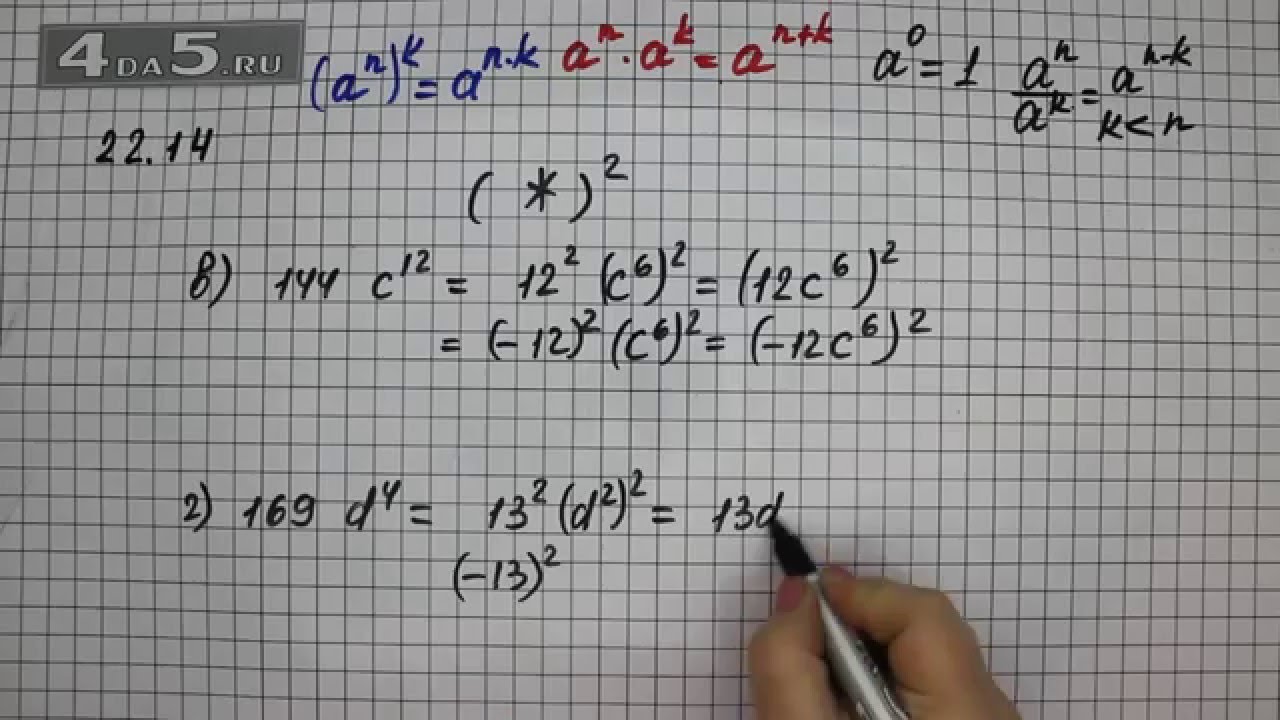 4DA5.RU
(aⁿ)ᵏ = aⁿ·ᵏ aⁿ · aᵏ = aⁿ⁺ᵏ a⁰ = 1 aⁿ/aᵏ = aⁿ⁻ᵏ
k < n
22.14
( * )²
в) 144 c¹² = 12² (c⁶)² = (12c⁶)²
= (-12)² (c⁶)² = (-12c⁶)²
г) 169 d⁴ = 13² (d²)² = 13d
(-13)²